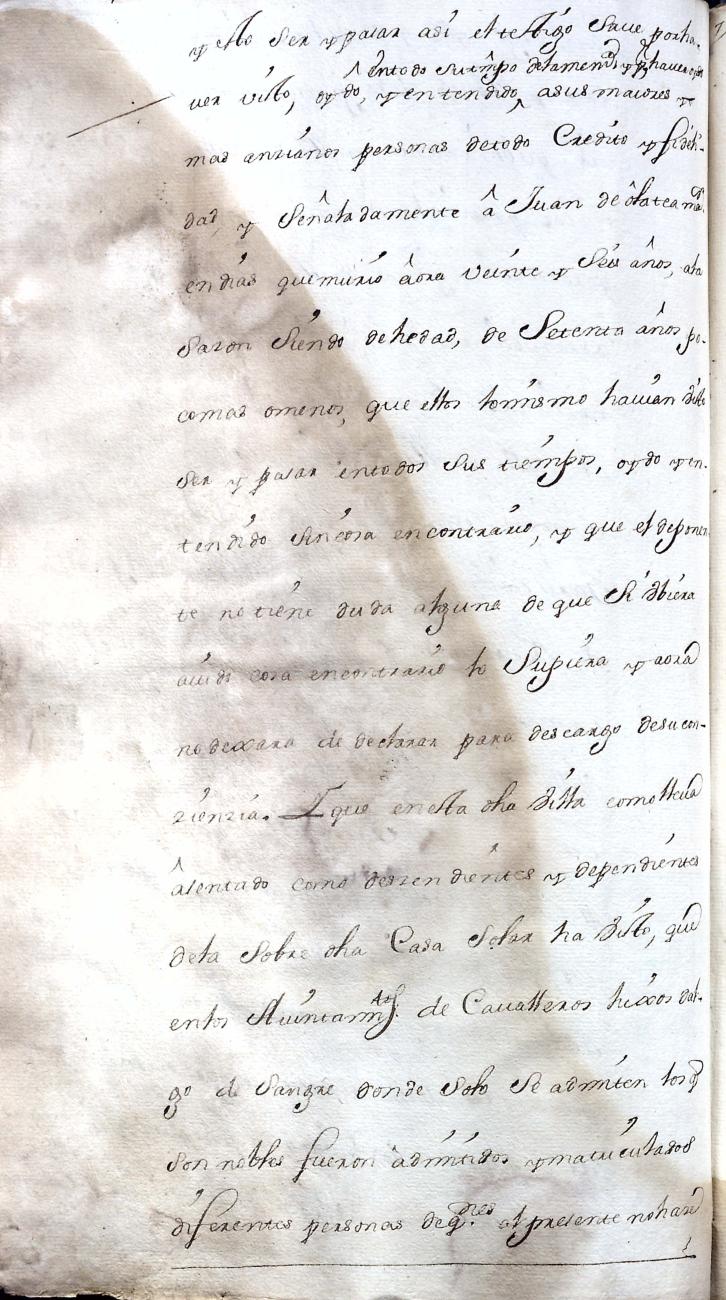 y esto ser y pasar asi el testigo save por ha-
en todo su tiempo de la men.d y p.r haver
ver visto, oydo, y entendido, a sus maiores y
mas anzianos personas de todo Credito y fideli-
dad, y señaladamente â Juan de ôlatea
en dias que murio âora veinte y seis años, a la
sazon siendo de hedad, de setenta años po-
co mas o menos, que ellos lo mismo havian visto
ser y pasar en todos sus tiempos, oydo y en-
tendido sin cosa en contrario, y que el deponen
te no tiene duda alguna de que si ubiera
avido cosa en contrario lo supiera y aora
no dexara de declarar para descargo de su con-
zienzia. Y que en esta dha villa como lleva
âsentado como deszendientes y dependientes
de la sobre dha Casa Solar ha visto, que
en los Aiuntam.tos de Cavalleros hixos dal-
go de sangre donde solo se admiten los q
son nobles fueron admitidos y matriculados
diferentes personas de q.nes al presente no hará